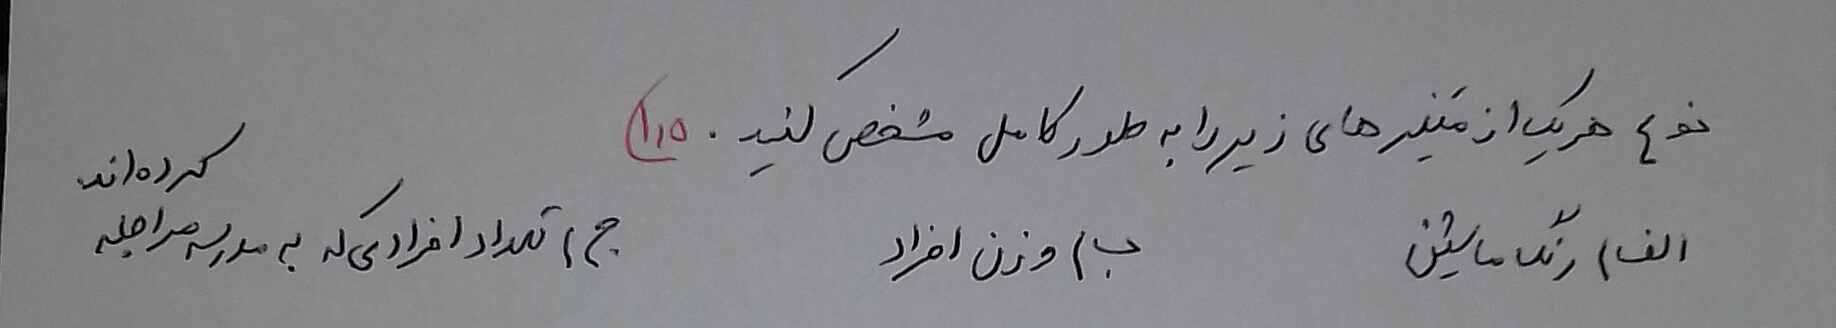 نوع هر یک از متغیرهای زیر را به طور کامل مشخص کنید. (۱٫۵
الف) رنگ ماشین ب) وزن افراد ج) تعداد افرادی که به مدرسه مراجعه
کرده‌اند.